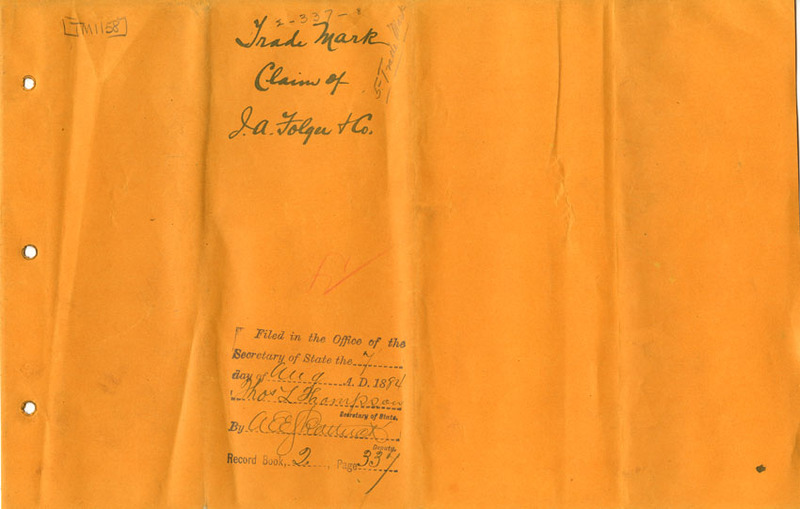 TM1158
2-337-
Trade Mark
Claim of
J. A. Folger & Co.
Filed in the Office of the
Secretary of State the 7
day of Aug A. D. 1884
Thos L Thompson
Secretary of State.
By
Deputy.
Record Book, 2, Page 337